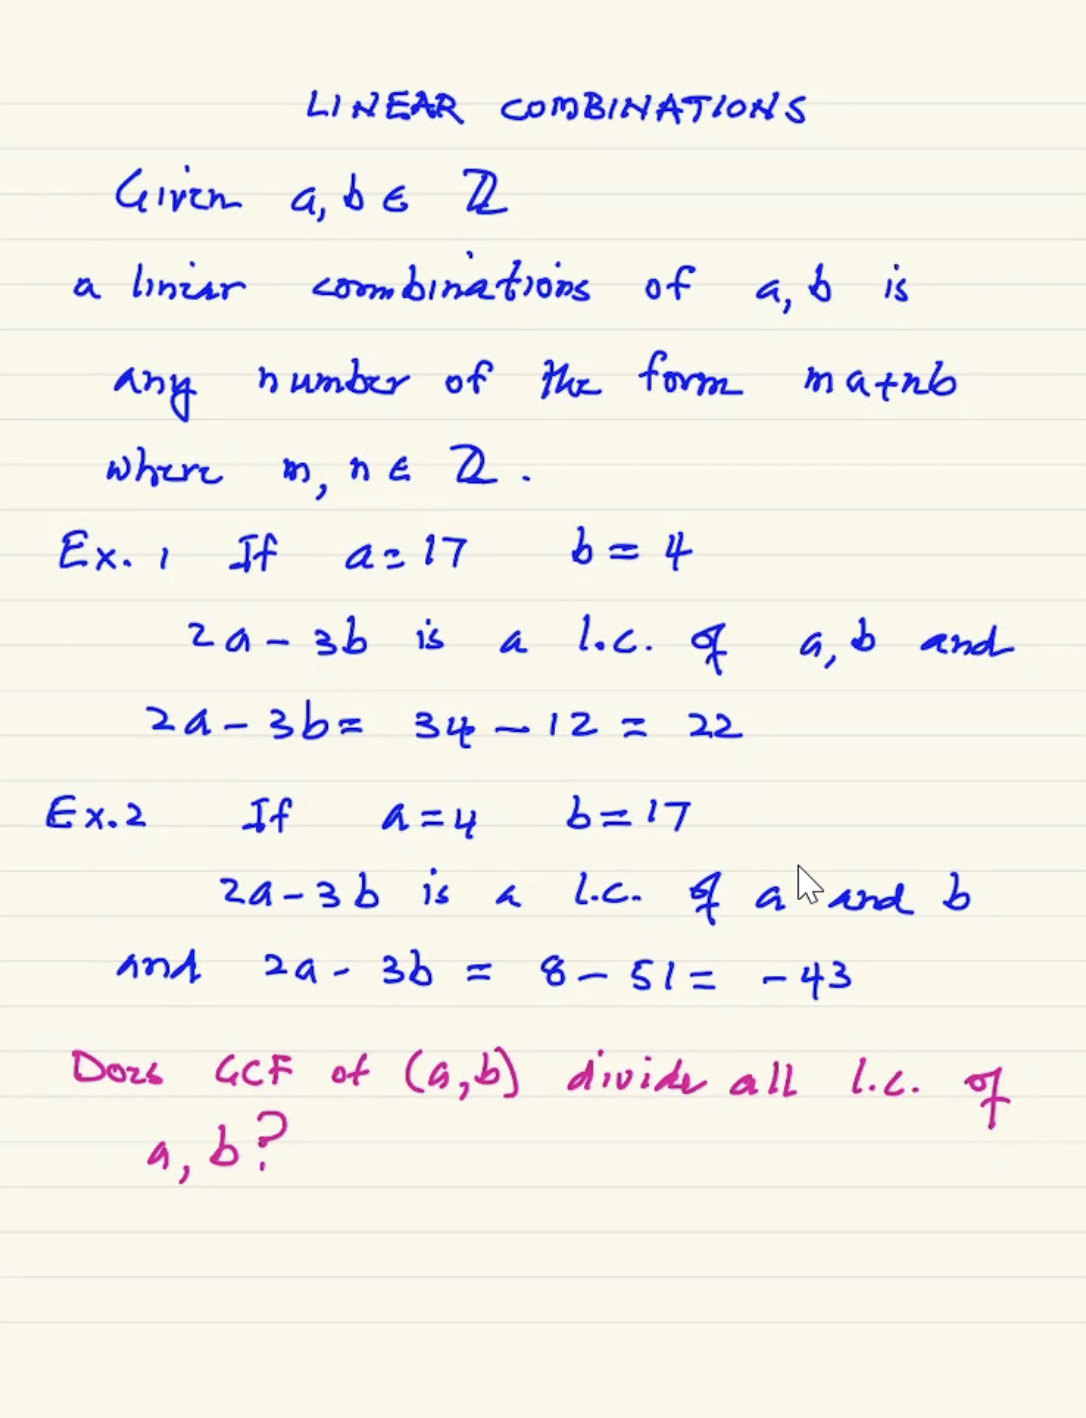 LINEAR COMBINATIONS
Given a, b ∈ ℤ
a linear combinations of a, b is
any number of the form ma+nb
where m, n ∈ ℤ.
Ex. 1 If a=17 b=4
2a-3b is a l.c. of a, b and
2a-3b= 34-12 = 22
Ex.2 If a=4 b=17
2a-3b is a l.c. of a and b
and 2a-3b = 8-51= -43
Does GCF of (a,b) divide all l.c. of
a, b?